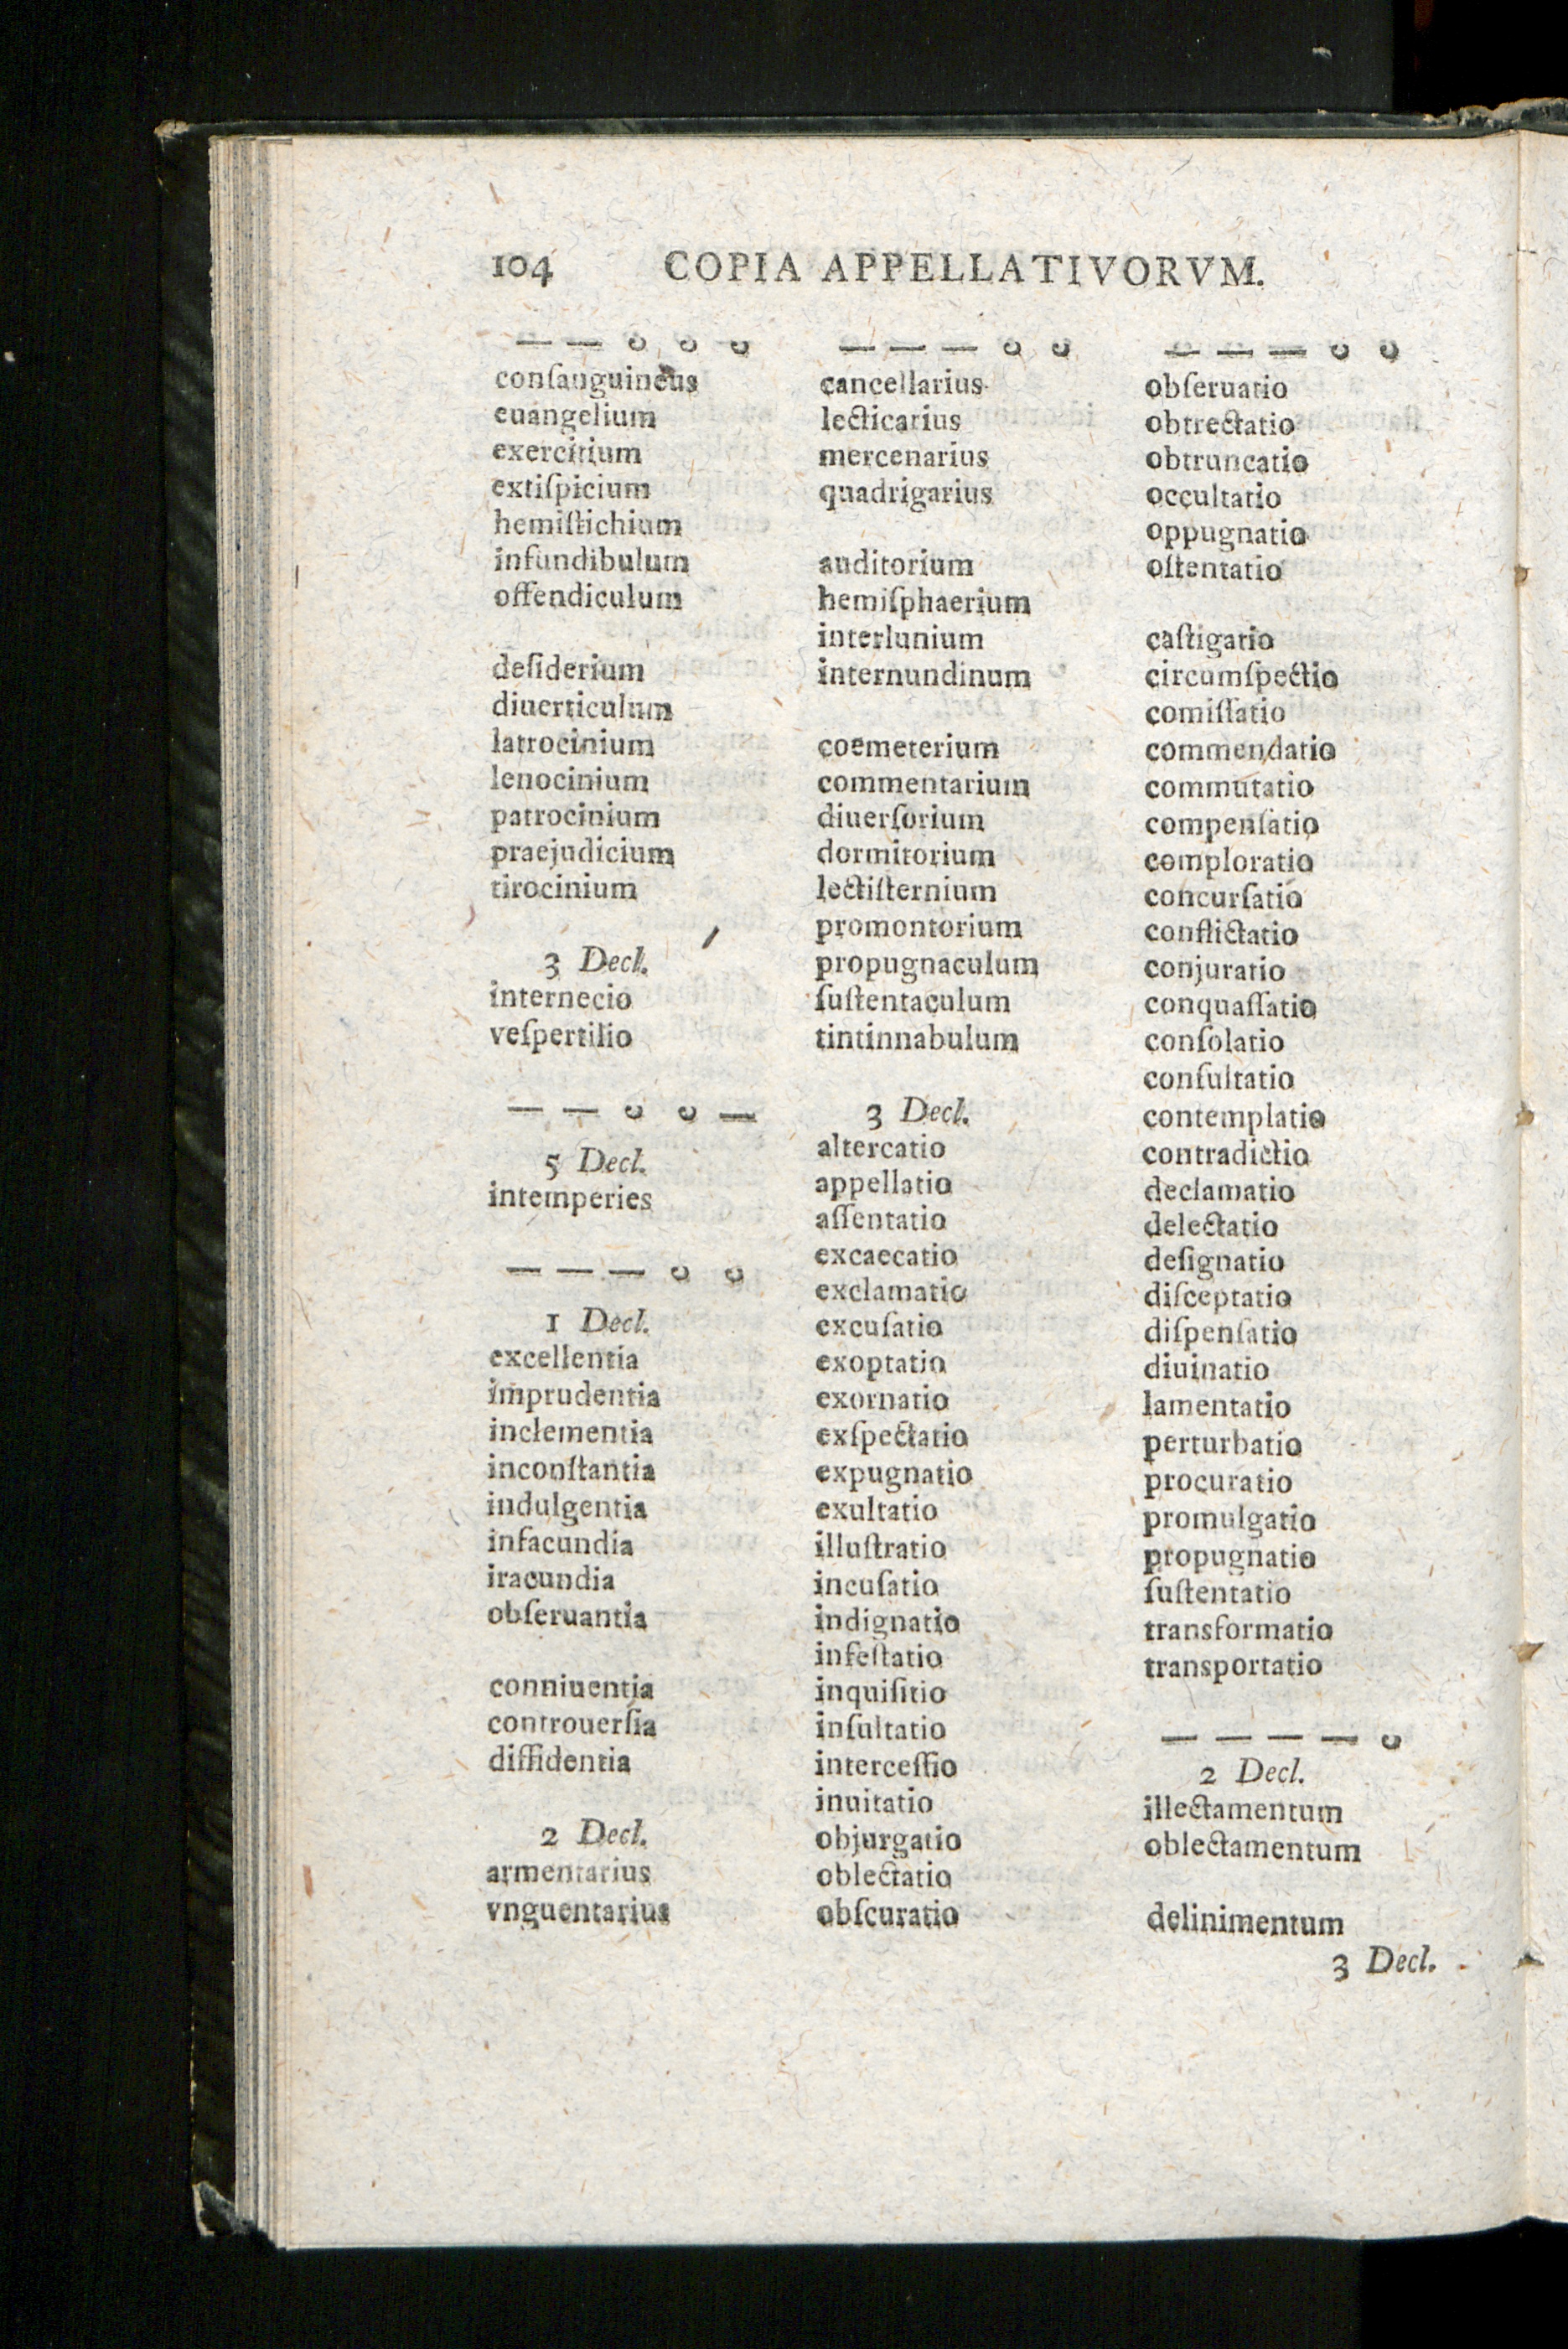 104 COPIA APPELLATIVORVM.
— — ᴗ ᴗ ᴗ
conſanguineus
euangelium
exercitium
extiſpicium
hemiſtichium
infundibulum
offendiculum
deſiderium
diuerticulum
latrocinium
lenocinium
patrocinium
praejudicium
tirocinium
3 Decl.
internecio
veſpertilio
— — ᴗ ᴗ —
5 Decl.
intemperies
— — — ᴗ ᴗ
1 Decl.
excellentia
imprudentia
inclementia
inconſtantia
indulgentia
infacundia
iracundia
obſeruantia
conniuentia
controuerſia
diffidentia
2 Decl.
armentarius
vnguentarius
— — — ᴗ ᴗ
cancellarius
lecticarius
mercenarius
quadrigarius
auditorium
hemiſphaerium
interlunium
internundinum
coemeterium
commentarium
diuerſorium
dormitorium
lectiſternium
promontorium
propugnaculum
ſuſtentaculum
tintinnabulum
3 Decl.
altercatio
appellatio
aſſentatio
excaecatio
exclamatio
excuſatio
exoptatio
exornatio
exſpectatio
expugnatio
exultatio
illuſtratio
incuſatio
indignatio
infeſtatio
inquiſitio
inſultatio
interceſſio
inuitatio
objurgatio
oblectatio
obſcuratio
— — — ᴗ ᴗ
obſeruatio
obtrectatio
obtruncatio
occultatio
oppugnatio
oſtentatio
caſtigatio
circumſpectio
comiſſatio
commendatio
commutatio
compenſatio
comploratio
concurſatio
conflictatio
conjuratio
conquaſſatio
conſolatio
conſultatio
contemplatio
contradictio
declamatio
delectatio
deſignatio
diſceptatio
diſpenſatio
diuinatio
lamentatio
perturbatio
procuratio
promulgatio
propugnatio
ſuſtentatio
transformatio
transportatio
— — — — ᴗ
2 Decl.
illectamentum
oblectamentum
delinimentum
3 Decl.